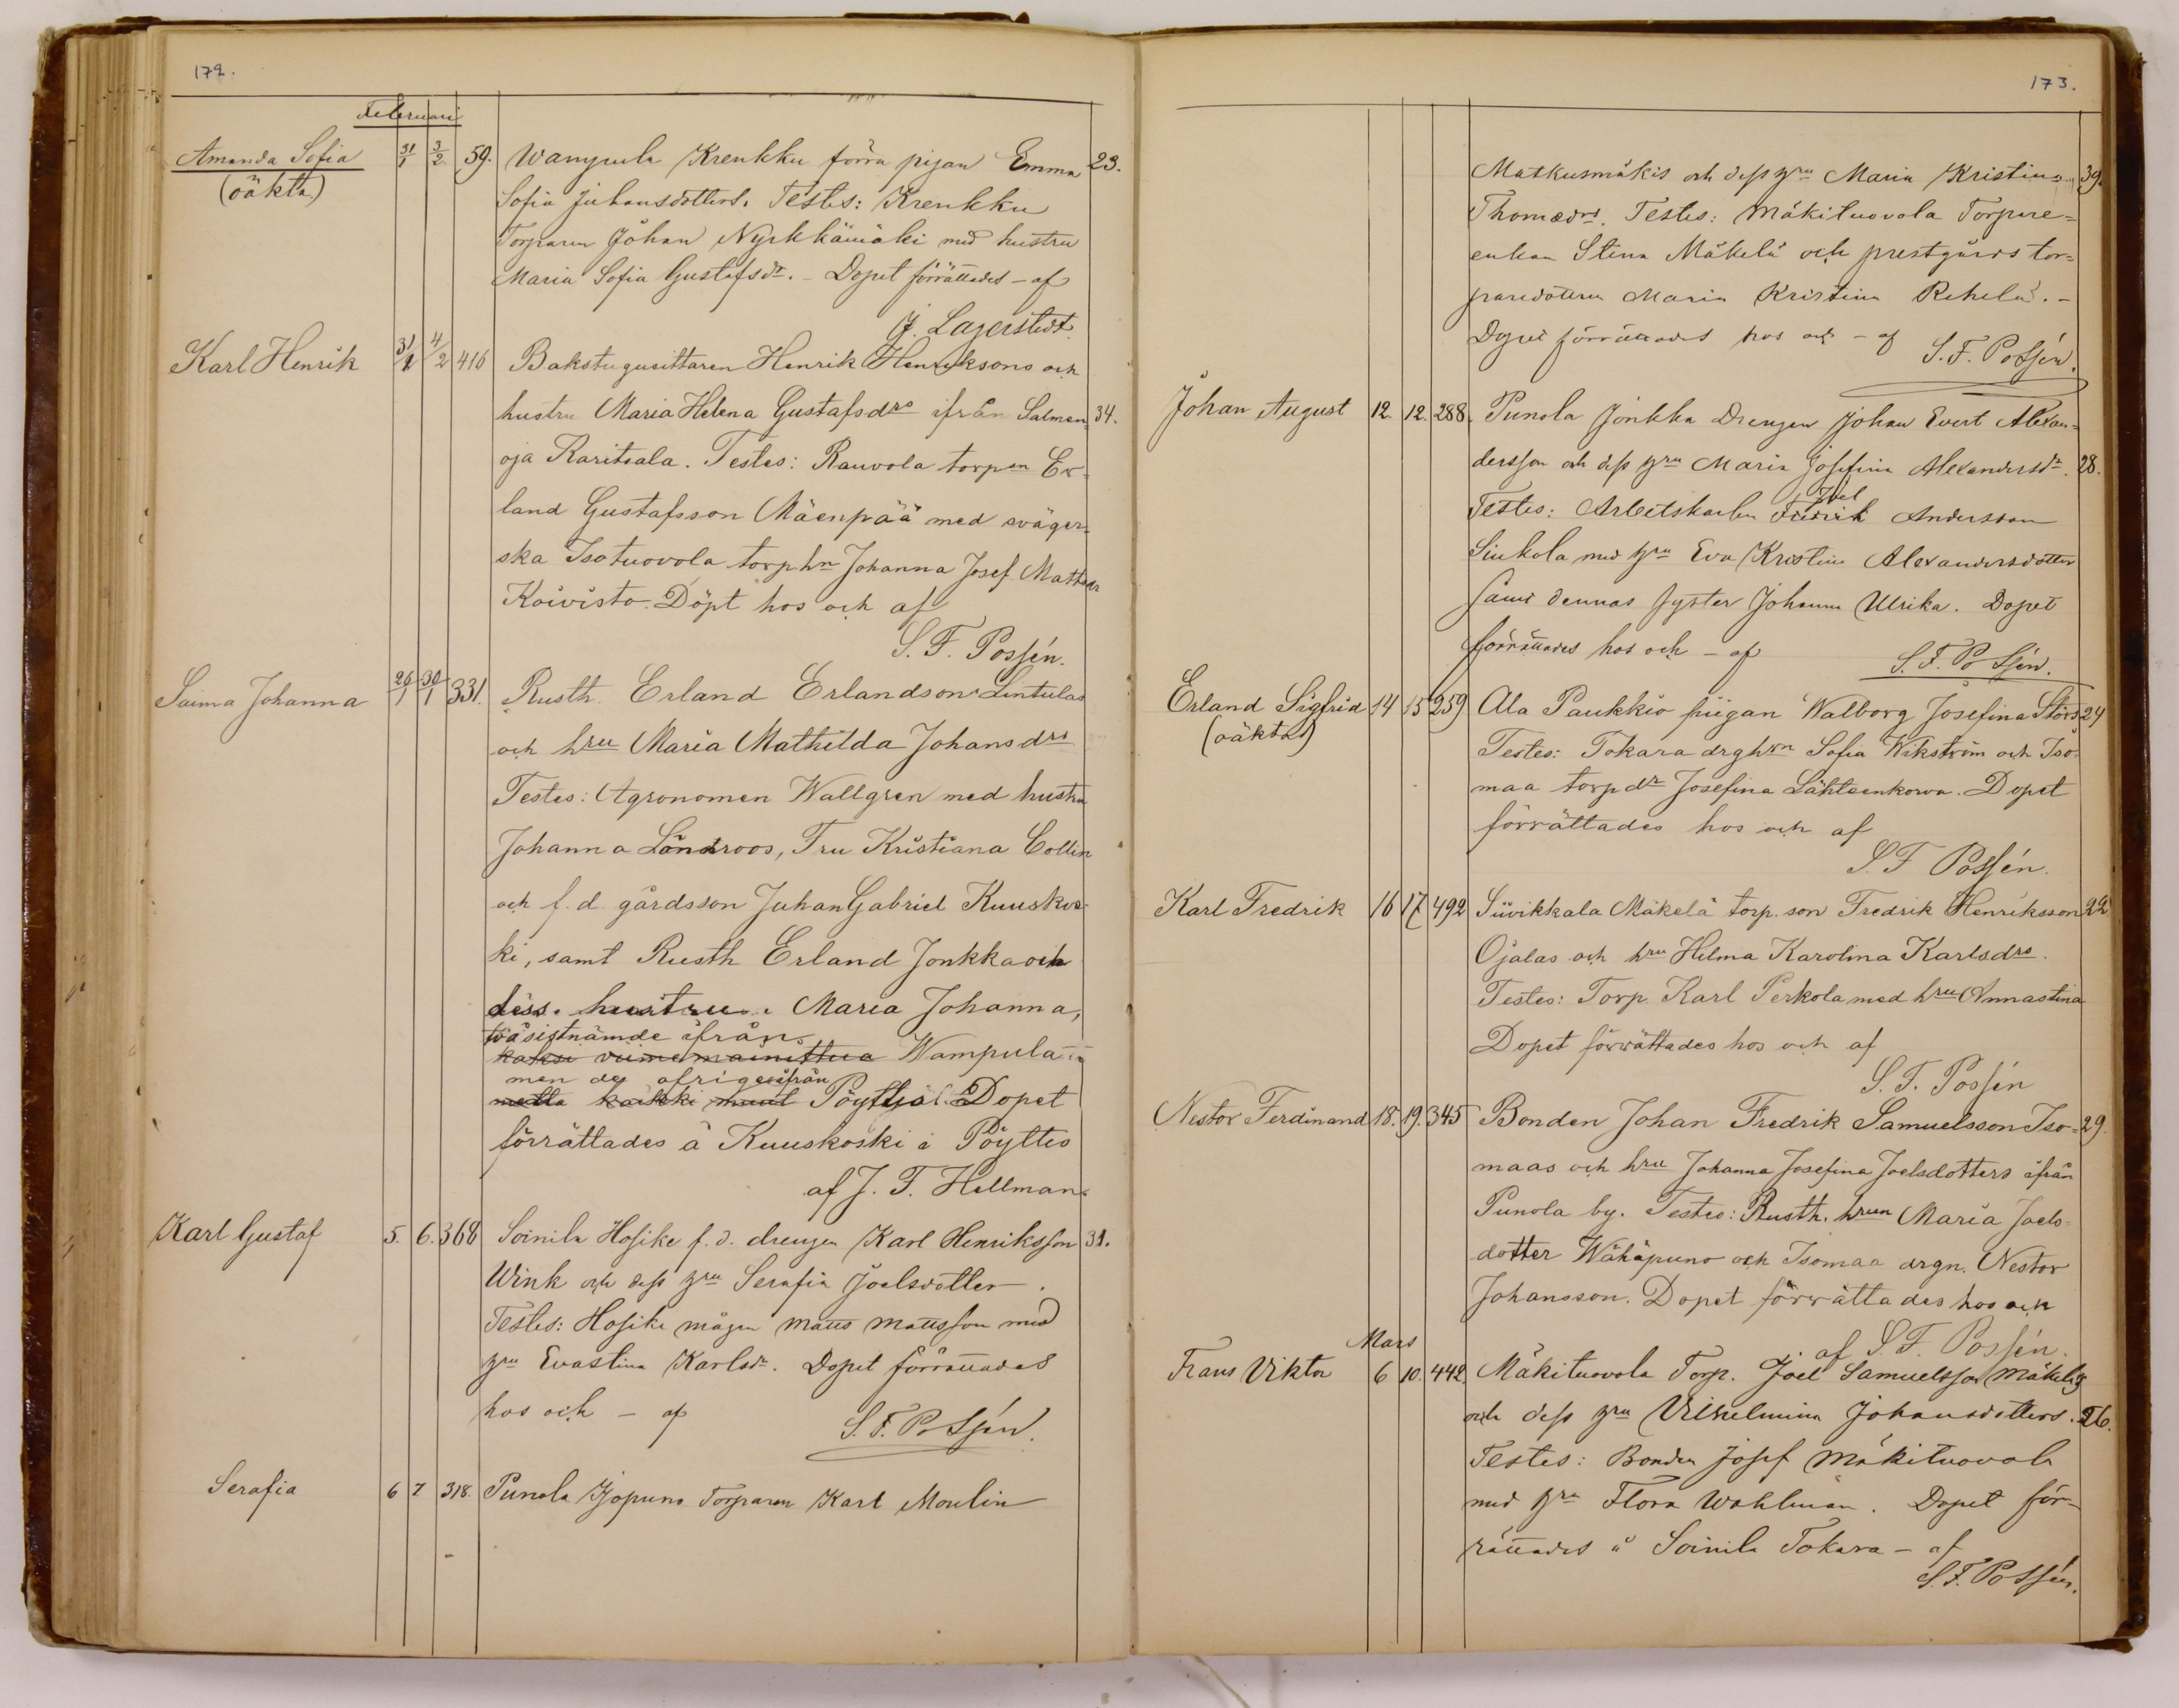 172.
Februari
Amanda Sofia 31/1 3/2 59. Wampula Krenkku förra pigan Emma 23.
(oäkta) Sofia Juhansdotters. Testes: Krenkku
Torparen Johan Nyrkkämäki med hustru
Maria Sofia Gustafsdr. - Dopet förrättades - af
J. Lagerstedt.
Karl Henrik 31/1 4/2 416 Bakstugusittaren Henrik Henriksons och
hustru Maria Helena Gustafsdrs ifrån Salmen= 34.
oja Raritsala. Testes: Rauvola torpen Er=
land Gustafsson Mäenpää med sväger=
ska Isotuovola torphn Johanna Josef. Mattsdr
Koivisto. Döpt hos och af
S. F. Possén.
Saima Johanna 26/1 30/1 331. Rusth. Erland Erlandsons Lintulas
och hru Maria Mathilda Johansdrs
Testes: Agronomen Wallgren med hustru
Johanna Löndroos, Fru Kristiana Collin
och f. d. gårdsson Juhan Gabriel Kuuskos=
ki, samt Rusth Erland Jonkka och
dess hustru Maria Johanna,
tväsistnämde ifrån
kaksi viimemainittua Wampula
men de öfrige ifrån
mutta kaikki muut Pöyttjä Dopet
förrättades å Kuuskoski i Pöyttis
af J. F. Hellman.
Karl Gustaf 5. 6. 368 Soinila Hosike f. d. drengen Karl Henriksson 31.
Wink och dess hru Serafia Joelsdotter.
Testes: Hosike mågen Matts Mattsson med
hru Evastina Karlsdr. Dopet förrättades
hos och - af S. F. Possén.
Serafia 6 7 318. Punola Jopuno Torparen Karl Moulin
173.
Matkusmäkis och dess hru Maria Kristina 39.
Thomædrs. Testes: Mäkituovola Torpare=
enkan Stina Mäkelä och prestgårds tor=
paredottren Maria Kristina Rekelä. -
Dopet förrättades hos och - af S. F. Possén.
Johan August 12. 12. 288. Punola Jonkka Drengen Johan Evert Alexan=
dersson och dess hru Maria Josefina Alexandersdr. 28.
Joel
Testes: Arbetskarlen Fredrik Andersson
Siukola med hru Eva Kristina Alexandersdotter
samt dennas syster Johanna Ulrika. Dopet
förrättades hos och - af S. F. Possén.
Erland Sigfrid 14 15 259 Ala Paukkio piigan Walborg Josefina Störs 24
(oäkta) Testes: Tokara drghrn Sofia Wikström och Iso=
maa torpdr Josefina Lähteenkorva. Dopet
förrättades hos och af
S. F. Possén.
Karl Fredrik 16 17 492 Siivikkala Mäkelä torp. son Fredrik Henriksson 22
Ojalas och hru Hilma Karolina Karlsdrs.
Testes: Torp. Karl Perkola med hru Annastina
Dopet förrättades hos och af
S. F. Possén
Nestor Ferdinand 18. 19. 345 Bonden Johan Fredrik Samuelsson Iso= 29.
maas och hru Johanna Josefina Joelsdotters ifrån
Punola by. Testes: Rusth. hrun Maria Joels=
dotter Wähäpuno och Isomaa drgn. Nestor
Johansson. Dopet förrättades hos och
af S. F. Possén.
Mars
Frans Viktor 6 10. 442. Mäkituovola Torp. Joel Samuelsson Mäkeläs
och dess hru Vilhelmina Johansdotters. 26.
Testes: Bonden Josef Mäkituovola
med hru Flora Wahlman. Dopet för=
rättades å Soinila Tokara - af
S. F. Possén.